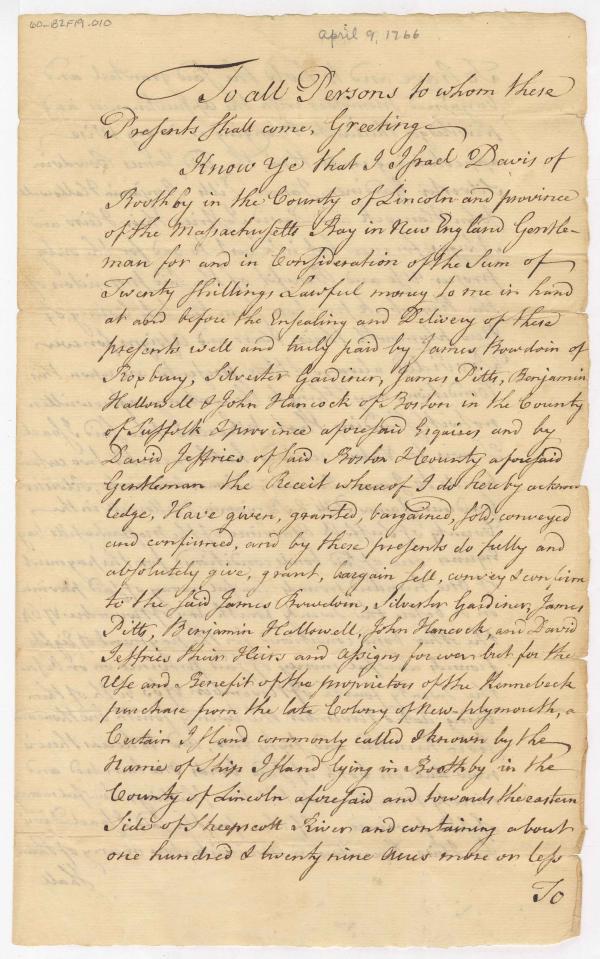 60-B2F19-010
April 9, 1766
To all Persons to whom these
Presents shall come, Greeting
Know Ye that I Israel Davis of
Boothby in the County of Lincoln and province
of the Massachusetts Bay in New England Gentle-
man for and in Consideration of the Sum of
Twenty Shillings Lawful money to me in hand
at and before the Ensealing and Delivery of these
presents well and truly paid by James Bowdoin of
Roxbury, Silvester Gardiner, James Pitts, Benjamin
Hallowell & John Hancock of Boston in the County
of Suffolk & province aforesaid Esquires and by
David Jeffries of said Boston & County aforesaid
Gentleman the Receit whereof I do hereby acknow
ledge, Have given, granted, bargained, sold, conveyed
and confirmed, and by these presents do fully and
absolutely give, grant, bargain sell, convey & confirm
to the said James Bowdoin, Silvester Gardiner, James
Pitts, Benjamin Hallowell, John Hancock, and David
Jeffries their Heirs and Assigns forever but for the
Use and Benefit of the proprietors of the Kennebeck
purchase from the late Colony of New-plymouth, a
Certain Island commonly called & known by the
Name of Ship Island lying in Boothby in the
County of Lincoln aforesaid and towards the eastern
Side of Sheepscott River and containing about
one hundred & twenty nine acres more or less
To